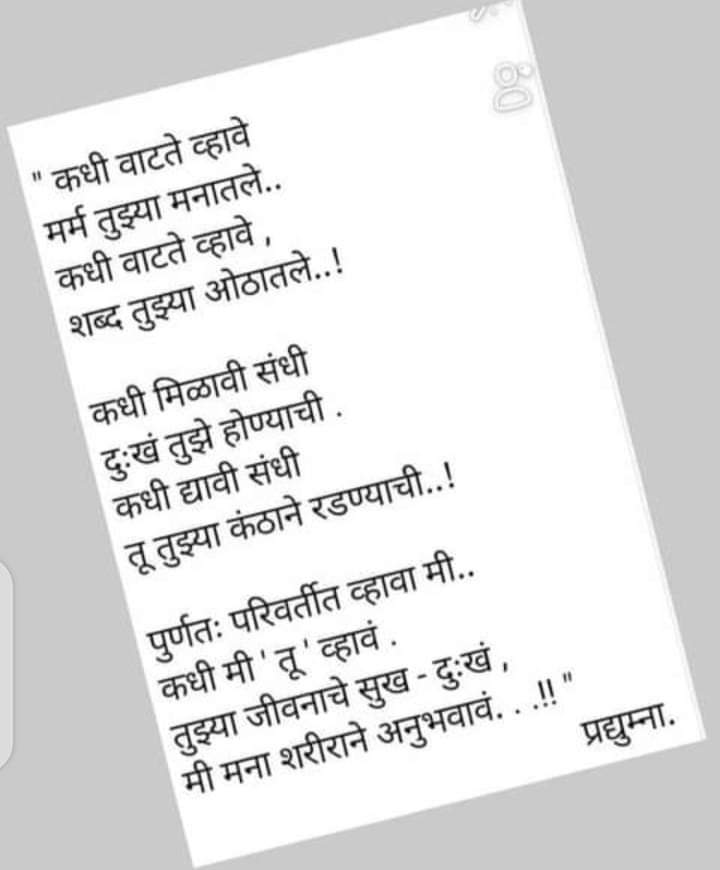 " कधी वाटते व्हावे
मर्म तुझ्या मनातले..
कधी वाटते व्हावे ,
शब्द तुझ्या ओठातले..!
कधी मिळावी संधी
दुःखं तुझे होण्याची .
कधी द्यावी संधी
तू तुझ्या कंठाने रडण्याची..!
पुर्णतः परिवर्तीत व्हावा मी..
कधी मी ' तू ' व्हावं .
तुझ्या जीवनाचे सुख - दुःखं ,
मी मना शरीराने अनुभवावं. . .!! "
प्रद्युम्ना.